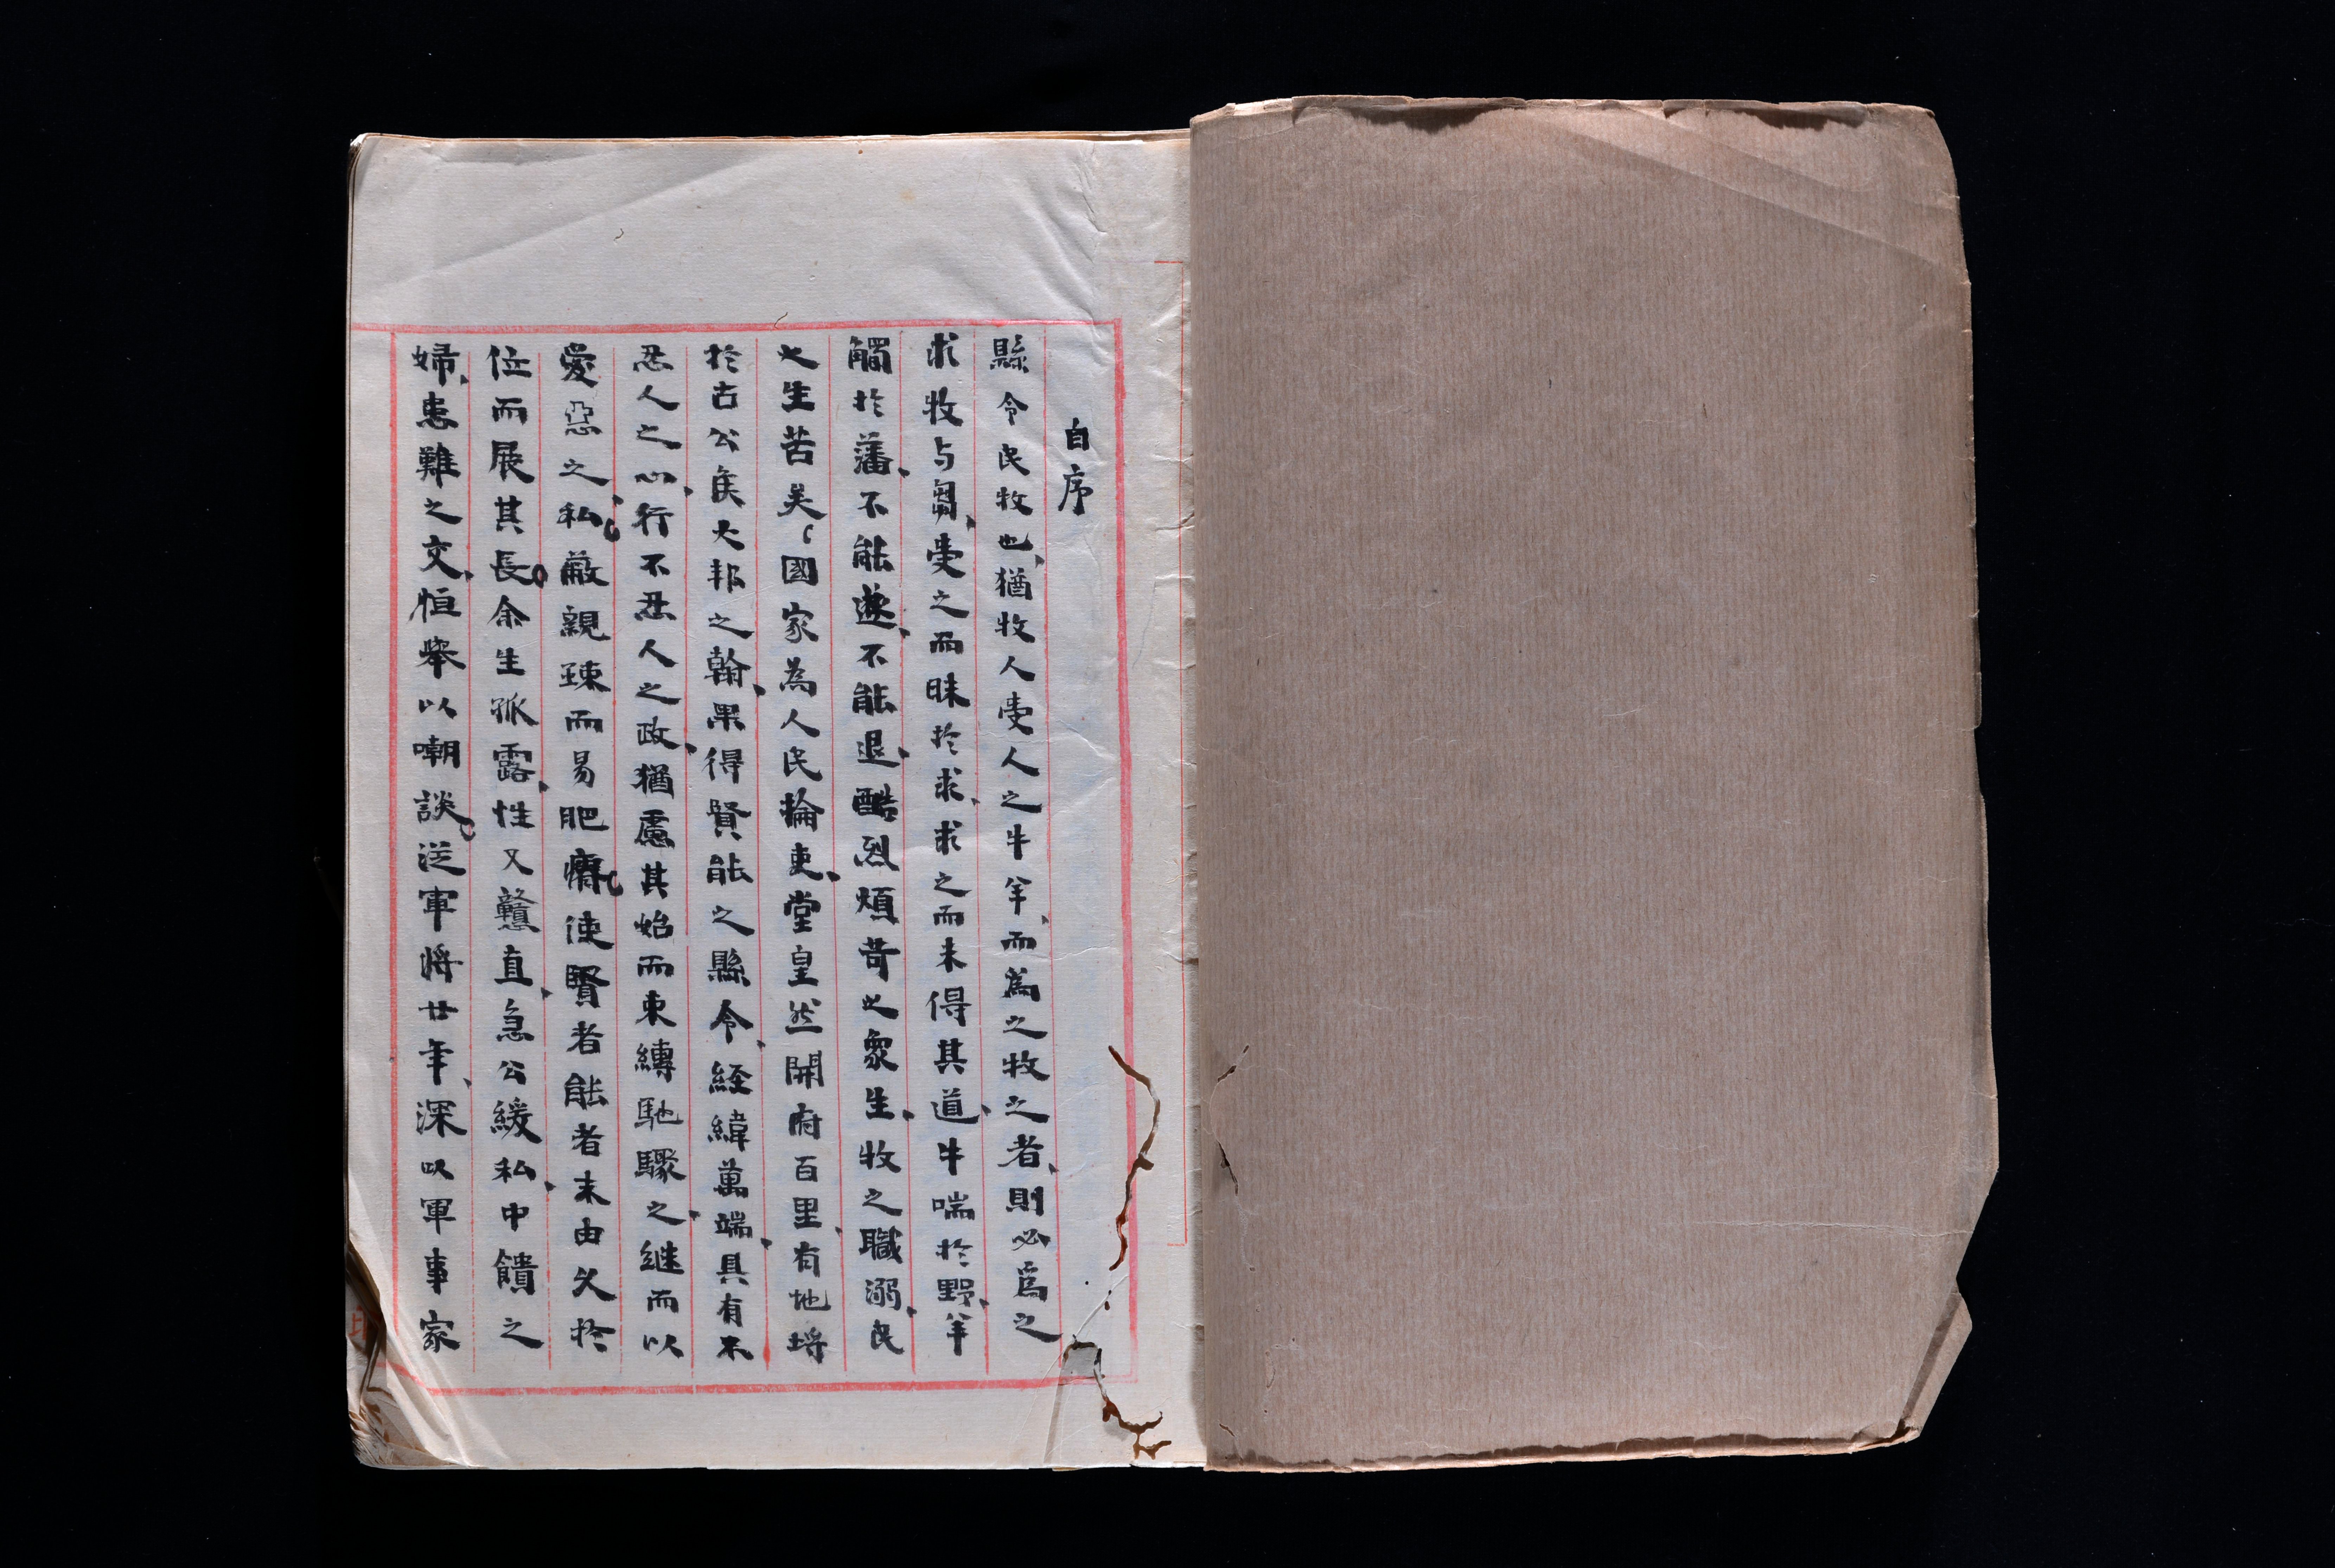 自序
縣令民牧也、猶牧人受人之牛羊、而為之牧之者、則必為之
求牧与芻、受之而昧於求、求之而未得其道、牛喘於野、羊
觸於藩、不能遂、不能退、酷烈煩苛之象生、牧之職溺、民
之生苦矣、國家為人民掄吏、堂皇然開府百里、有地埒
於古公侯大邦之翰、果得賢能之縣令、經緯萬端、具有不
忍人之心、行不忍人之政、猶慮其始而束縛馳驟之、继而以
愛惡之私、蔽親疎而易肥瘠、使賢者能者未由久於
位而展其長。余生孤露、性又戇直、急公緩私、中饋之
婦、患難之交、恒舉以嘲談、從軍將廿年、深以軍事家